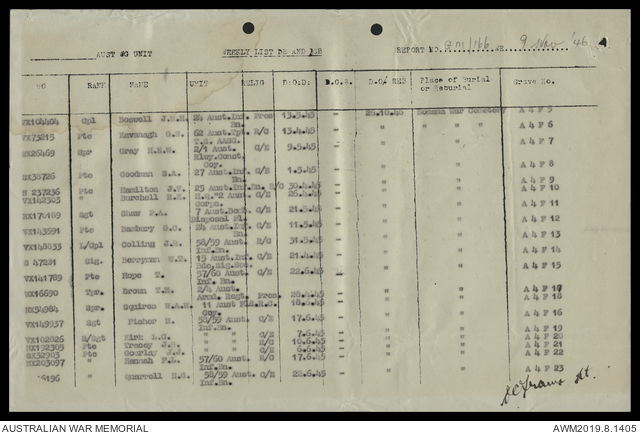 AUST WG UNIT WEEKLY LIST DE AND REB REPORT NO. GM/166 WE 9 Nov '46
NO RANK NAME UNIT RELIG D.O.D. D.O.B. D.O/ REB Place of Burial or Reburial Grave No.
VX104404 Cpl Boswell J.H.H. 24 Aust.Inf. Bn. Pres 13.5.45 - 25.10.46 War Cemetery A 4 F 5
VX73215 Pte Kavanagh G.H. 62 Aust.Tpt. R/C 13.4.45 - " " " A 4 F 6
Spr Gray 2/1 Aust. C/E 9.5.45 - " A 4 F 7
Rlwy.Const. Coy.
SX38726 Pte Goodman S.A. 27 Aust.Inf. Bn. C/E 1.5.45 - " A 4 F 8
N 237236 Pte Hamilton J.V. 25 Aust.Inf.Bn. R/C 30.4.45 - " A 4 F 9
VX142303 " Burchell H.Q. 2 Aust Corps. C/E 26.4.45 - " A 4 F 10
NX170189 Sgt Shaw F.A. 7 Aust.Bomb Disposal Pl. C/E 21.5.45 - " A 4 F 11
VX143591 Pte G.C. 24 Aust.Inf. Bn. C/E 11.5.45 - " A 4 F 12
VX148833 L/Cpl Colling J.R. 58/59 Aust. Inf.Bn. R/C 31.5.45 - " A 4 F 13
S 47281 Sig. Berryman W.T. 15 Aust.Inf C/E 21.4.45 - " A 4 F 14
VX141789 Pte Hope T. 57/60 Aust. Inf.Bn. C/E 22.6.45 - " A 4 F 15
WX16690 Tpr. Brown T.H. 2/4 Aust. Armd. Regt. Pres - " A 4 F 17
Spr. Squires W.A.H. 11 Aust Coy. - " A 4 F 18
VX149937 Sgt Fisher H. 58/59 Aust Inf.Bn. C/E 17.6.45 - " A 4 F 16
VX102026 S/Sgt Kirk L.G. " " C/E 7.6.45 - " A 4 F 19
VX192305 Pte Tracey J.J. " " R/C 10.6.45 - " A 4 F 20
SX32903 Pte Gourlay J.S. " " C/E 6.6.45 - " A 4 F 21
NX203097 " Hannah F.L. 57/60 Aust Inf.Bn. 17.6.45 - " A 4 F 22
6196 " Quarrell H.G. 58/59 Aust Inf.Bn. C/E 22.6.45 - " A 4 F 23
AUSTRALIAN WAR MEMORIAL AWM2019.8.1405